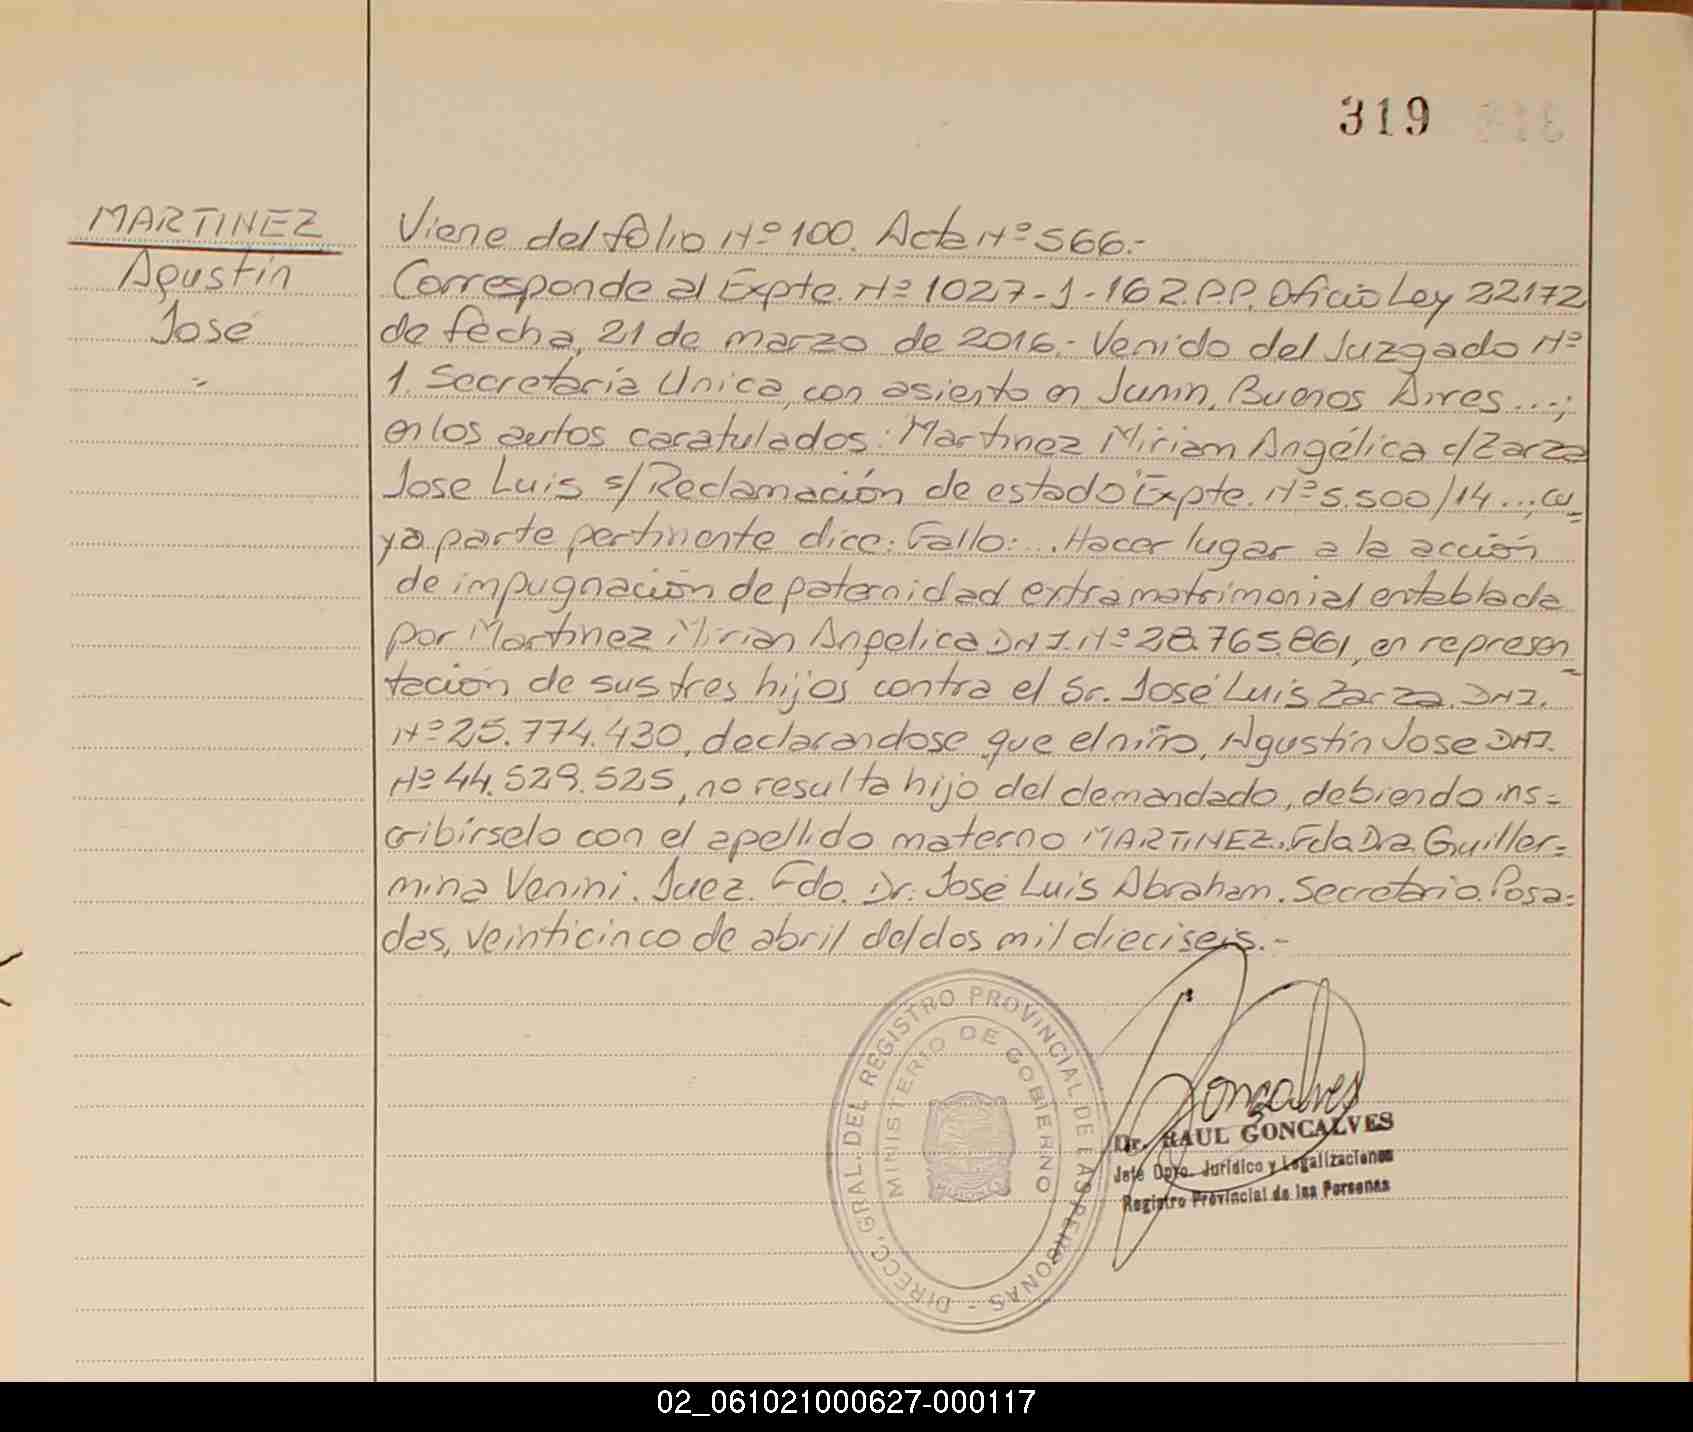 319
MARTINEZ
Agustín
José
=
Viene del folio Nº 100. Acta Nº 566.-
Corresponde al Expte. Nº 1027-J-162.P.P. Oficio Ley 22172
de fecha, 21 de marzo de 2016.- Venido del Juzgado Nº
1. Secretaría Unica, con asiento en Junin, Buenos Aires...;
en los autos caratulados: Martinez Miriam Angélica c/Zarza
Jose Luis s/Reclamación de estado Expte. Nº 5.500/14...; cu=
ya parte pertinente dice: Fallo:... Hacer lugar a la acción
de impugnación de paternidad extramatrimonial entablada
por Martinez Mirian Angelica DNI. Nº 28.765.861, en represen=
tación de sus tres hijos contra el Sr. José Luis Zarza. DNI.
Nº 25.774.430, declarandose que el niño, Agustín Jose DNI.
Nº 44.529.525, no resulta hijo del demandado, debiendo ins=
cribírselo con el apellido materno MARTINEZ. Fda Dra. Guiller=
mina Venini. Juez. Fdo. Dr. José Luis Abraham. Secretario. Posa=
das, veinticinco de abril del dos mil dieciseis.-
DIRECC. GRAL. DEL REGISTRO PROVINCIAL DE LAS PERSONAS -
MINISTERIO DE GOBIERNO
Gonçalves
Dr. RAUL GONCALVES
Jefe Dpto. Jurídico y Legalizaciones
Registro Provincial de las Personas
02_061021000627-000117